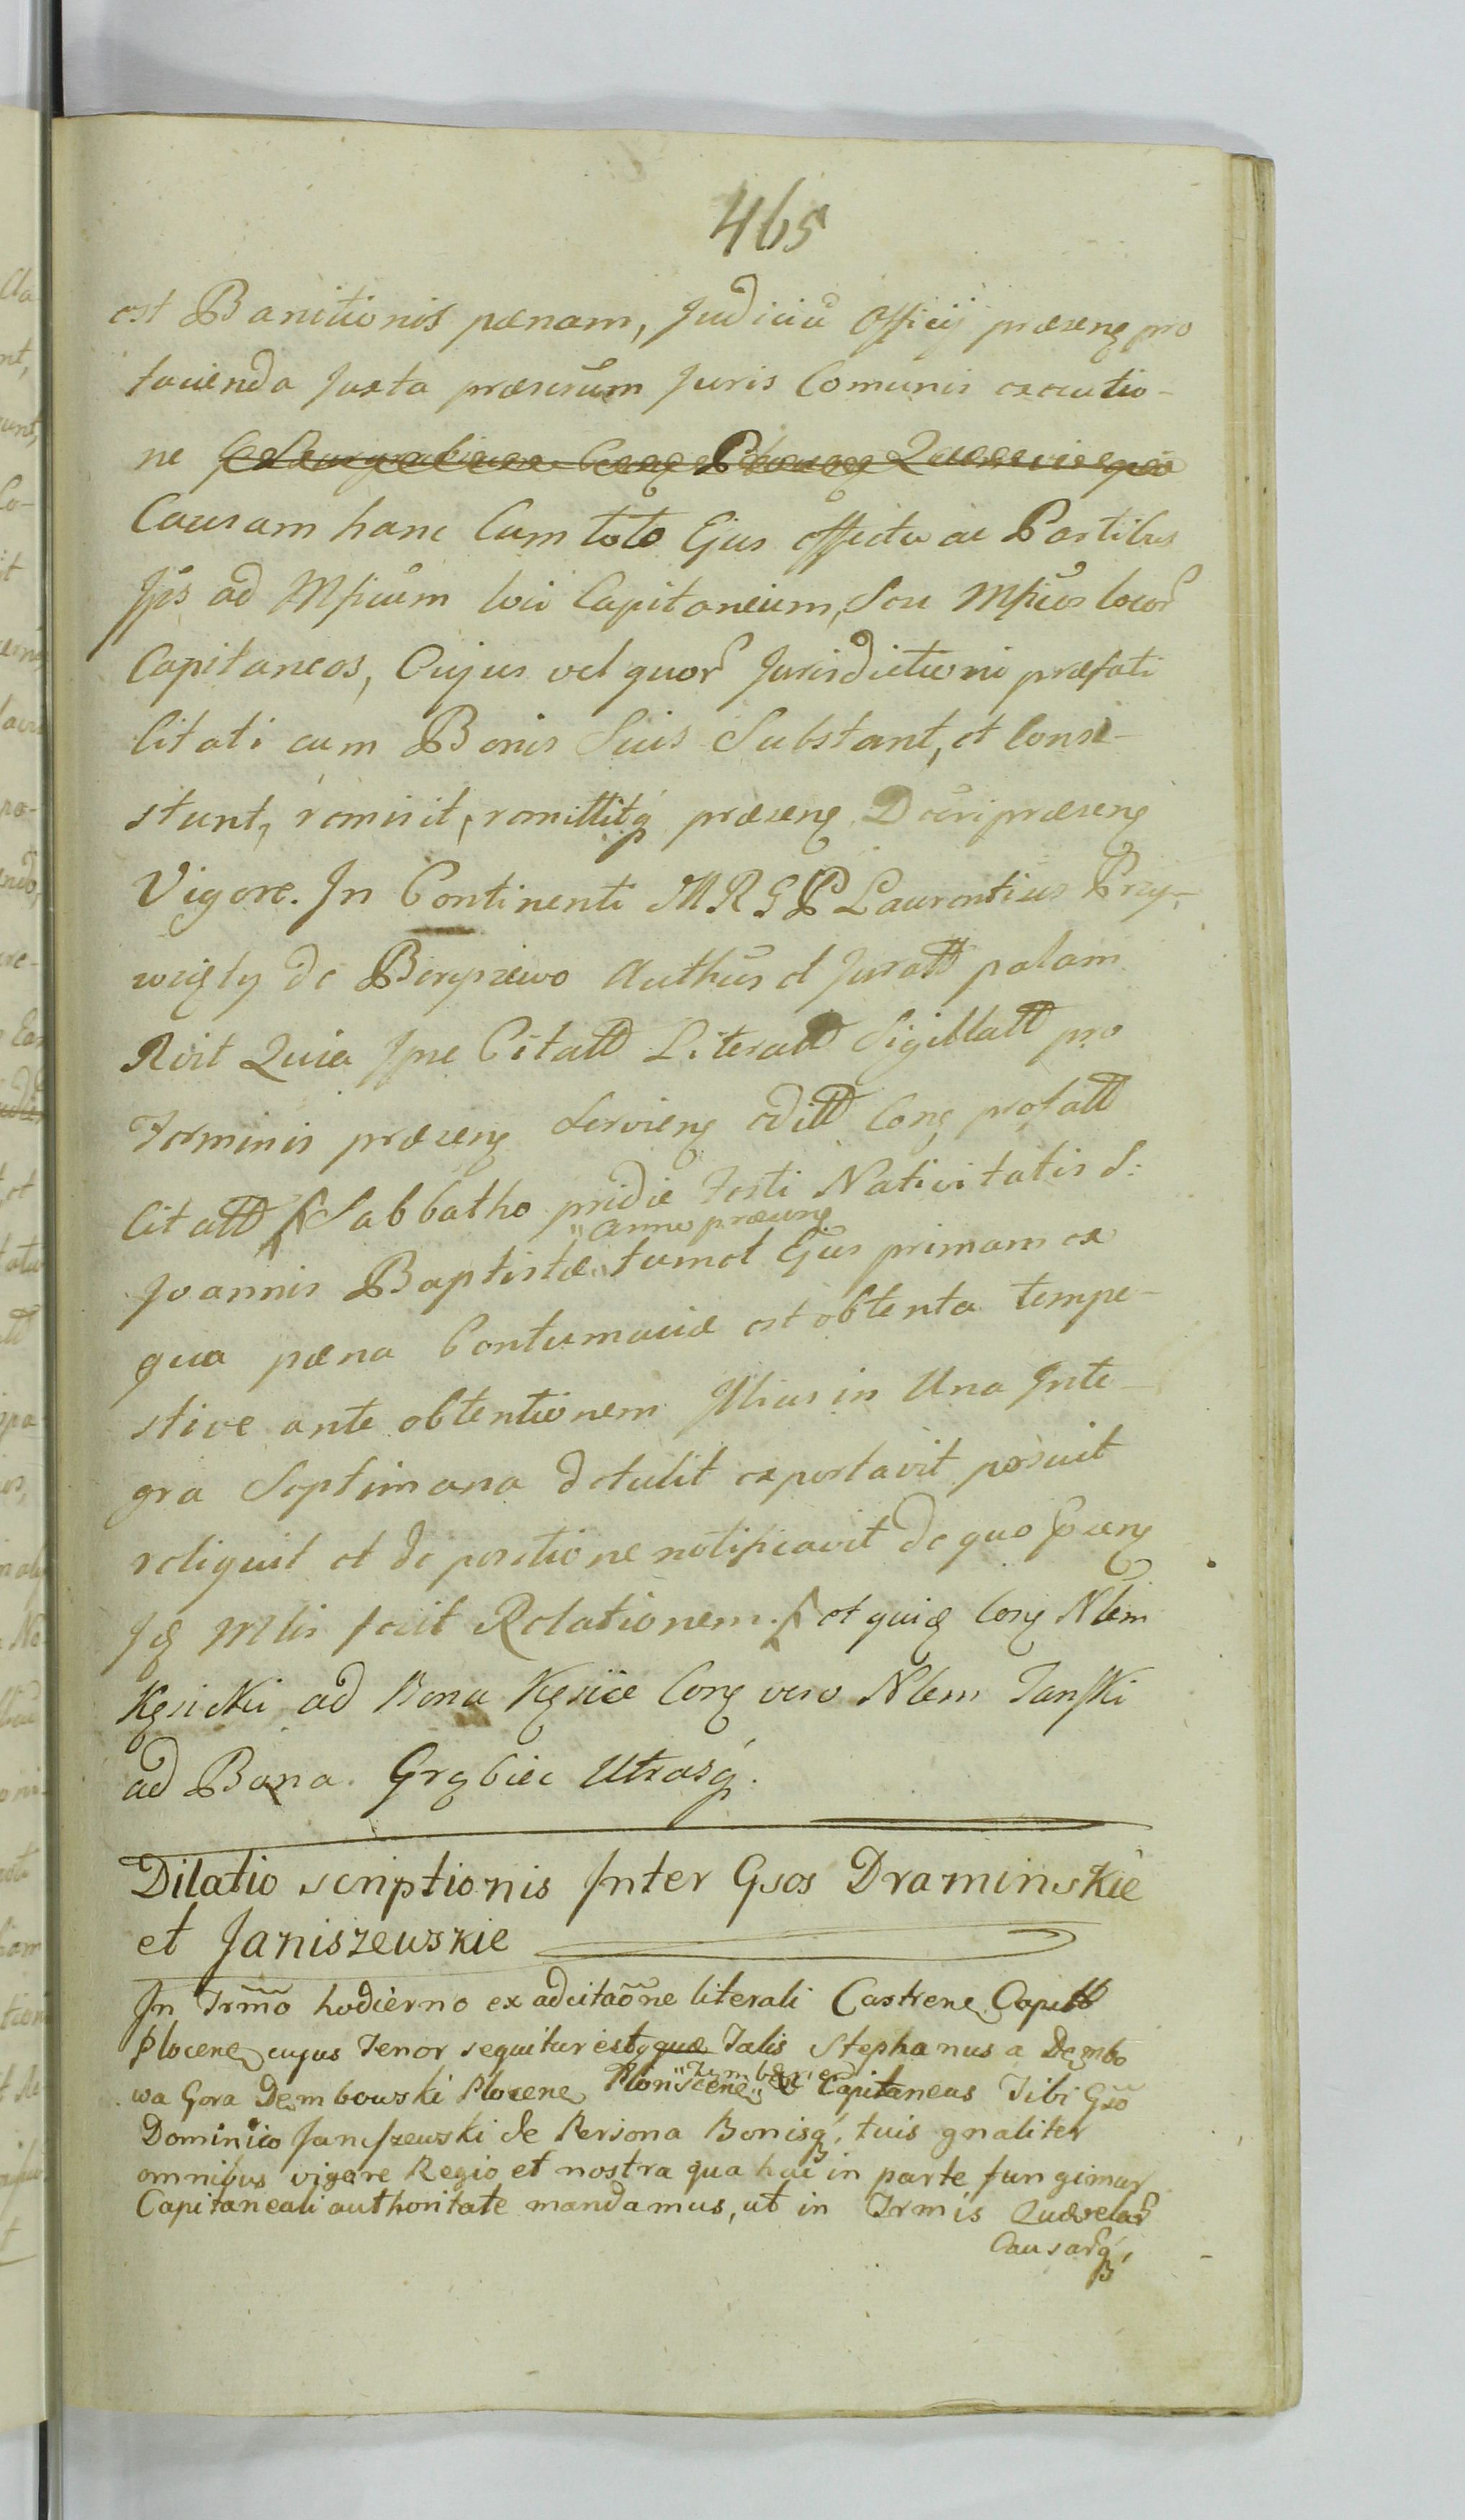 465
est Banitionis pœnam, Judiciũ Officij præseng pro
facienda Juxta præscrũm Juris Comunis executio-
ne
Causam hanc Cum toto Ejus effectu ac Partibus
Jp̃s ad Mficũm loci Capitaneum, Seu Mficõs locor̃
Capitaneos, Cujus vel quor̃ Jurisdictioni præfati
Citati cum Bonis Suis Substant, et Consi-
stunt, remisit, remittitq́ præseng Dec̃ri præseng
Vigore. In Continenti MRGP Laurentius Przy-
Authũs et Juratt palam
Rvit Quia Jpse Citatt Literatt Sigillatt pro
Terminis præseng Servieng editt Cong præfatt
Citatt Sabbatho pridie Festi Nativitatis S:
Joannis Baptistæ "anno præseng" tum et Ejus primam ex
qua pœna Contumaciæ est obtenta tempe-
stive ante obtentionem Illius in Una Inte-
gra Septimana detulit exportavit posuit
reliquit et de positione notificavit de quo præseng
fecit Relationem. et quidem Cong Nlem
Kęsicki ad Bona Kęsice Cong vero Nlem Janski
ad Bona. Grębiec Utrasq́.
Dilatio scriptionis Inter Gsos Draminskie
et Janiszewskie
In Trm̃o hodierno ex adcitaõne literali Castreng Capitt
Ploceng cujus Tenor sequitur estq quæ Talis Stephanus a Dembo
wa Gora Dembowski Ploceng Plonsceng & Capitaneus Tibi Gso
Dominico Janiszewski de Persona Bonisq́, tuis gnaliter
omnibus vigore Regio et nostra qua hac in parte fungimur
Capitaneali authoritate mandamus, ut in Trmis Querelar̃
Causar̃q́,